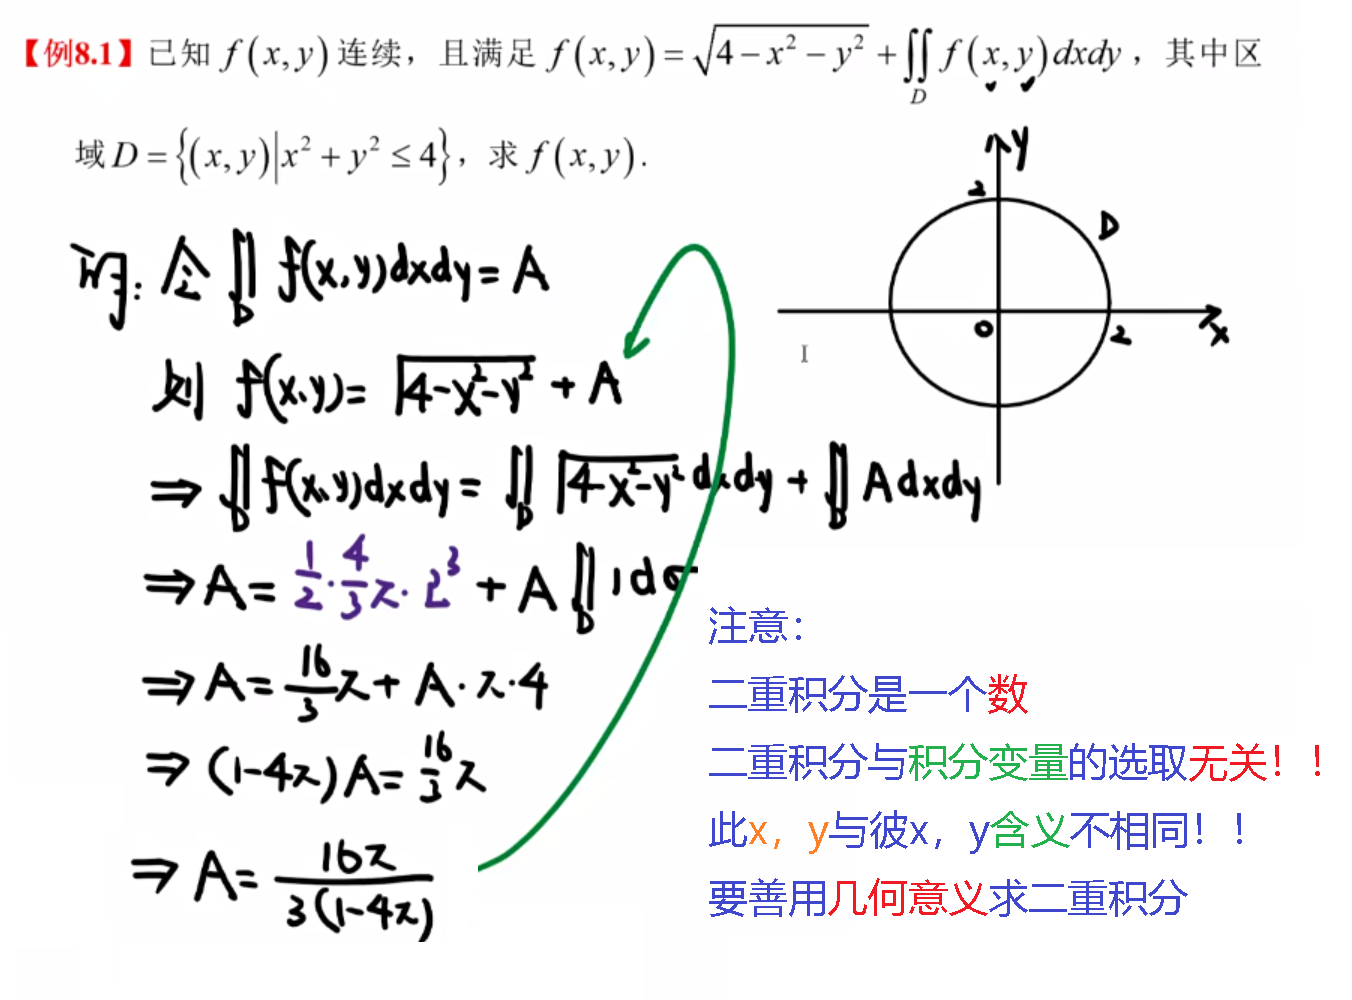 【例8.1】已知 f(x,y) 连续，且满足 f(x,y)=√(4−x²−y²)+∬_D f(x,y)dxdy，其中区
域 D={(x,y)|x²+y²≤4}，求 f(x,y).
y
2
D
解：令 ∬_D f(x,y)dxdy=A
0
2
x
则 f(x,y)=√(4-x²-y²)+A
⇒∬_D f(x,y)dxdy=∬_D √(4-x²-y²) dxdy+∬_D A dxdy
⇒A=1/2·4/3π·2³+A∬_D 1dσ
⇒A=16/3π+A·π·4
⇒(1-4π)A=16/3π
⇒A=16π/3(1-4π)
注意：
二重积分是一个数
二重积分与积分变量的选取无关！！
此x，y与彼x，y含义不相同！！
要善用几何意义求二重积分